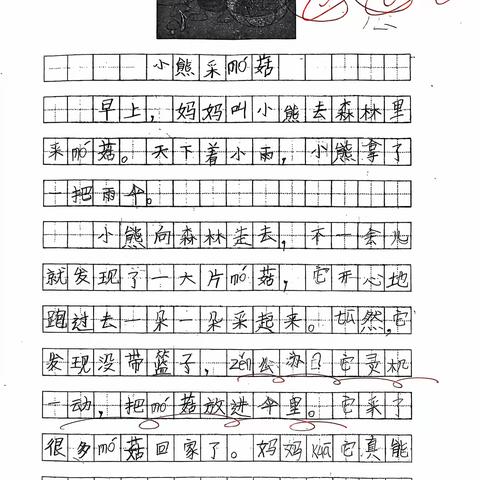 小熊采mó菇
早上，妈妈叫小熊去森林里
采mó菇。天下着小雨，小熊拿了
一把雨伞。
小熊向森林走去，不一会儿
就发现了一大片mó菇，它开心地
跑过去一朵一朵采起来。忽然，它
发现没带篮子，zěn么办？它灵机
一动，把mó菇放进伞里。它采了
很多mó菇回家了。妈妈kuā它真能